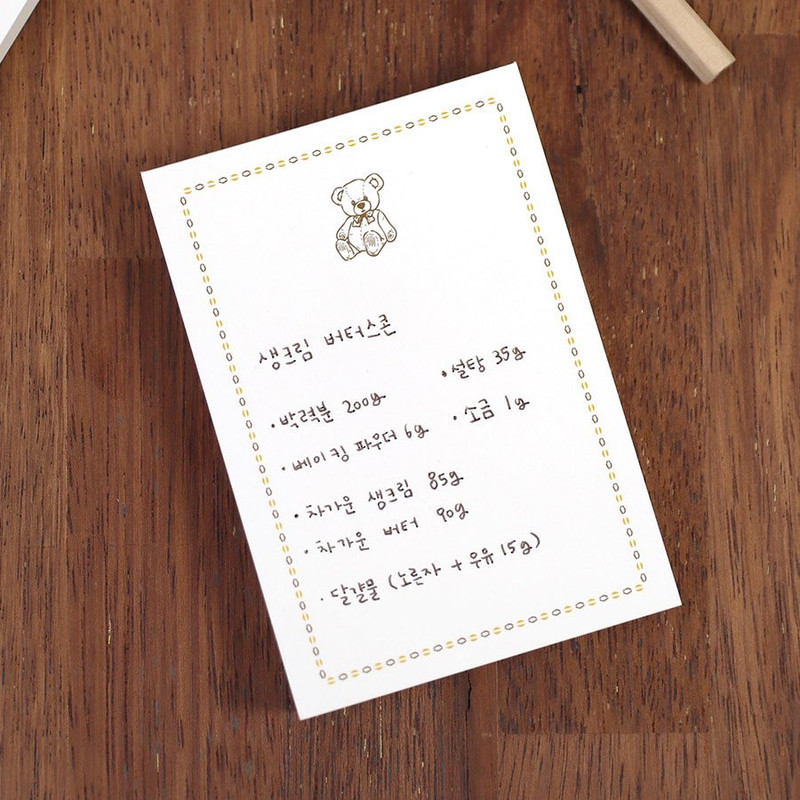 생크림 버터스콘
· 박력분 200g
· 설탕 35g
· 베이킹 파우더 6g
· 소금 1g
· 차가운 생크림 85g
· 차가운 버터 90g
· 달걀물 (노른자 + 우유 15g)